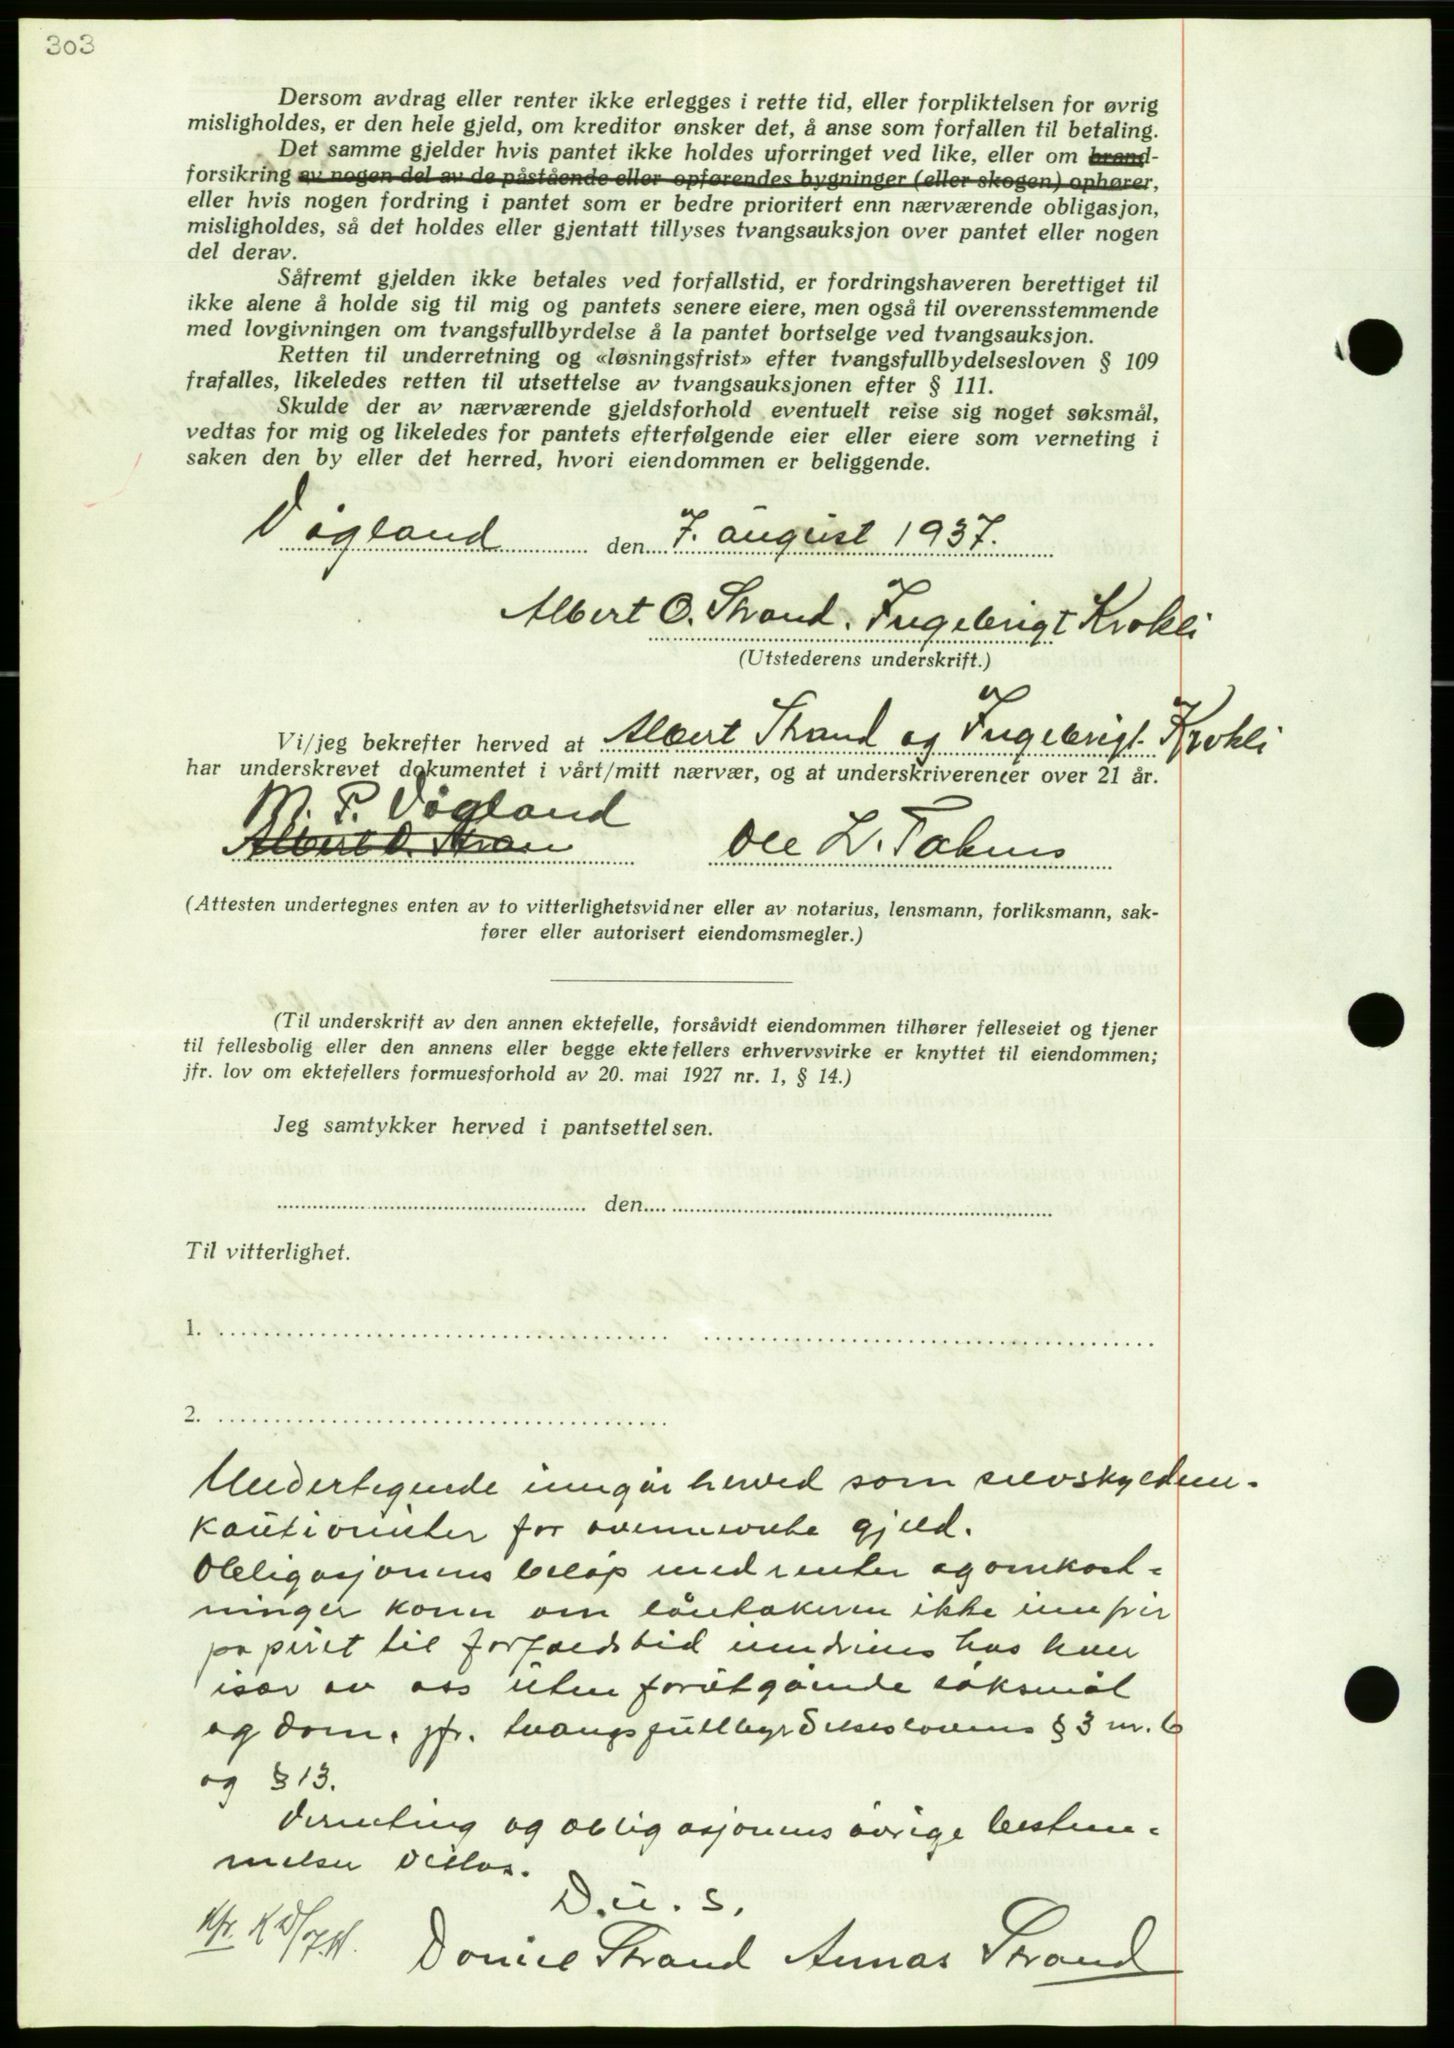 303
Dersom avdrag eller renter ikke erlegges i rette tid, eller forpliktelsen for øvrig
misligholdes, er den hele gjeld, om kreditor ønsker det, å anse som forfallen til betaling.
Det samme gjelder hvis pantet ikke holdes uforringet ved like, eller om brand-
forsikring av nogen del av de påstående eller opførendes bygninger (eller skogen) ophører,
eller hvis nogen fordring i pantet som er bedre prioritert enn nærværende obligasjon,
misligholdes, så det holdes eller gjentatt tillyses tvangsauksjon over pantet eller nogen
del derav.
Såfremt gjelden ikke betales ved forfallstid, er fordringshaveren berettiget til
ikke alene å holde sig til mig og pantets senere eiere, men også til overensstemmende
med lovgivningen om tvangsfullbyrdelse å la pantet bortselge ved tvangsauksjon.
Retten til underretning og «løsningsfrist» efter tvangsfullbydelsesloven § 109
frafalles, likeledes retten til utsettelse av tvangsauksjonen efter § 111.
Skulde der av nærværende gjeldsforhold eventuelt reise sig noget søksmål,
vedtas for mig og likeledes for pantets efterfølgende eier eller eiere som verneting i
saken den by eller det herred, hvori eiendommen er beliggende.
Vågland den 7. august 1937.
Albert O. Strand. Ingebrigt Krokli
(Utstederens underskrift.)
Vi/jeg bekrefter herved at Albert Strand og Ingebrigt Krokli
har underskrevet dokumentet i vårt/mitt nærvær, og at underskriveren er over 21 år.
M. P. Vågland
Albert O. Stran Ole L.
(Attesten undertegnes enten av to vitterlighetsvidner eller av notarius, lensmann, forliksmann, sak-
fører eller autorisert eiendomsmegler.)
(Til underskrift av den annen ektefelle, forsåvidt eiendommen tilhører felleseiet og tjener
til fellesbolig eller den annens eller begge ektefellers erhvervsvirke er knyttet til eiendommen;
jfr. lov om ektefellers formuesforhold av 20. mai 1927 nr. 1, § 14.)
Jeg samtykker herved i pantsettelsen.
den
Til vitterlighet.
1.
2.
Undertegnede inngår herved som selvskyldner-
kautionister for ovennevnte gjeld.
Obligasjonens beløp med renter og omkost-
ninger kann om låntakeren ikke innfrir
papiret til forfaldstid inndrives hos hver
især av oss uten forutgående søksmål
og dom, jfr. tvangsfullbyrdelseslovens § 3 nr. 6
og § 13.
Verneting og obligasjonens øvrige bestem-
melser vedtas.
D. u. s.
Strand Annas Strand